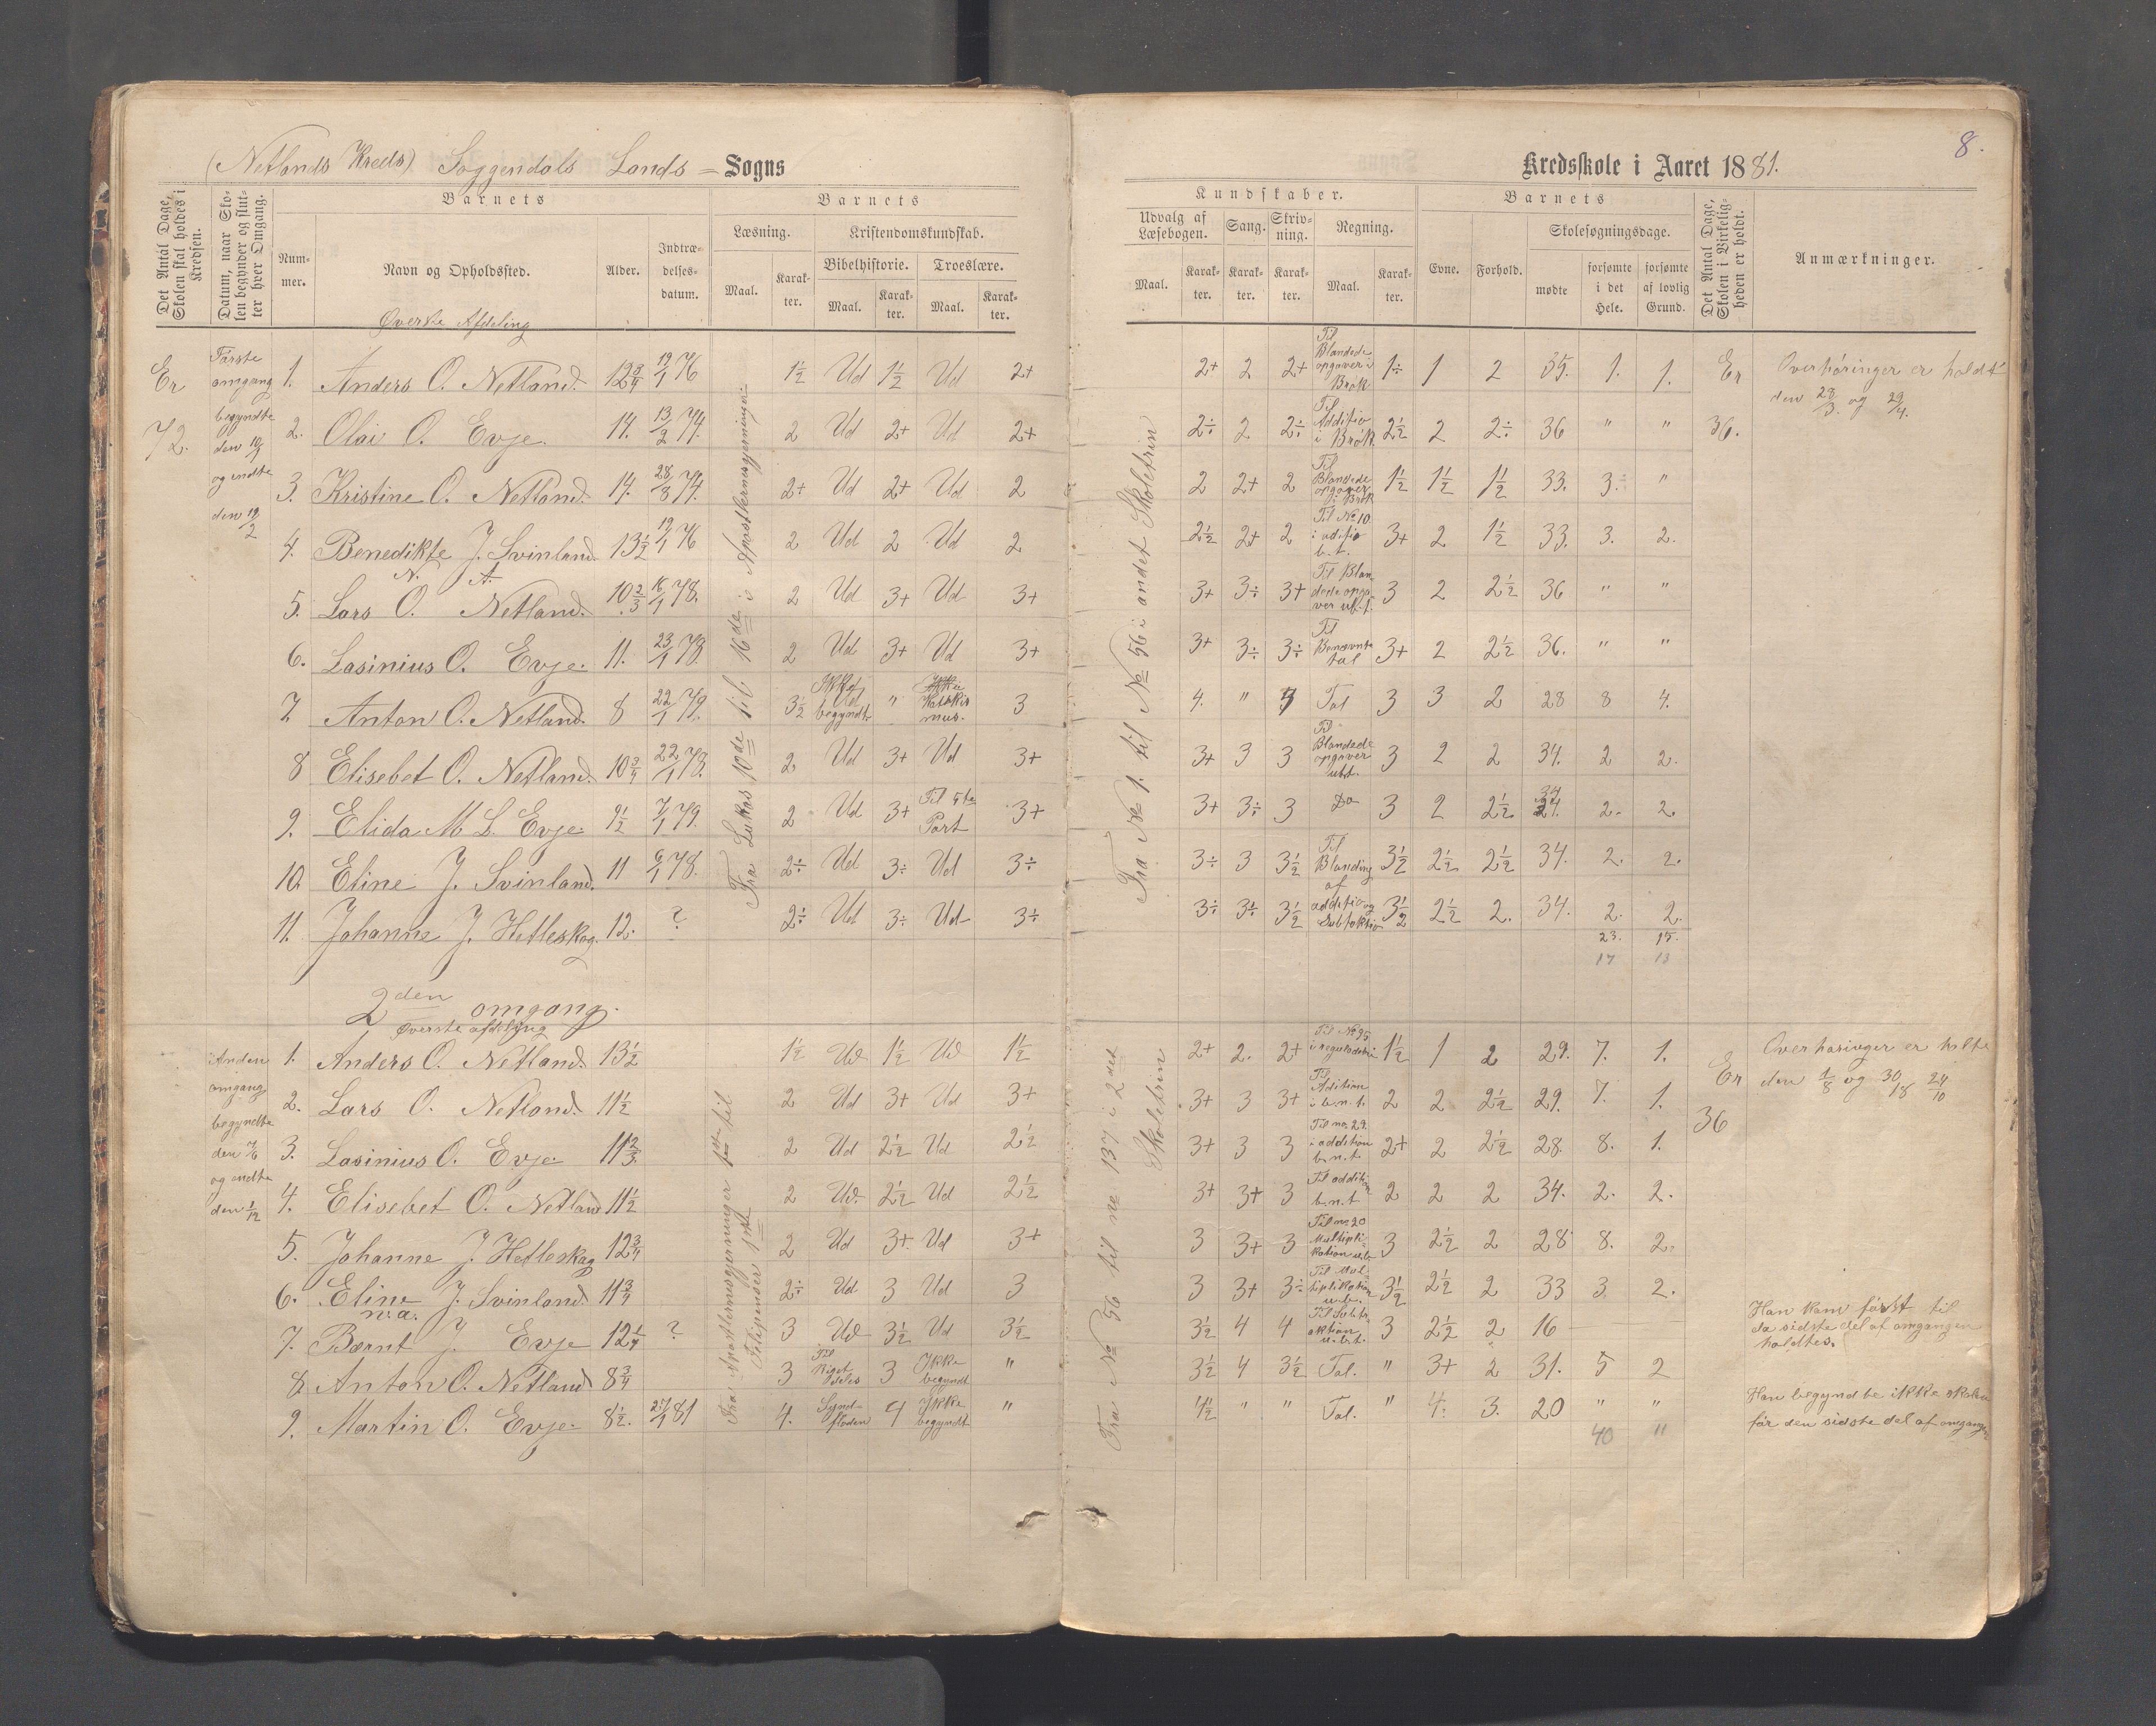 (Netlands Kreds) Soggendals Lands = Sogns
Kredsskole i Aaret 1881.
8.
Det Antal Dage, Skolen skal holdes i Kredsen.
Datum, naar Skolen begynder og slutter hver Omgang.
Barnets
Nummer.
Navn og Opholdssted.
Alder.
Indtrædelsesdatum.
Barnets
Læsning.
Maal.
Karakter.
Kristendomskundskab.
Bibelhistorie.
Maal.
Karakter.
Troeslære.
Maal.
Karakter.
Kundskaber.
Udvalg af Læsebogen.
Maal.
Karakter.
Sang.
Karakter.
Skrivning.
Karakter.
Regning.
Maal.
Karakter.
Barnets
Evne.
Forhold.
Skolesøgningsdage.
mødte
forsømte i det Hele.
forsømte af lovlig Grund.
Det Antal Dage, Skolen i Virkeligheden er holdt.
Anmærkninger.
Øverste Afdeling
Er
72.
Første omgang begyndte den 10/1 og endte den 19/2
Fra Lukas 10de til 16de i Apostlernesgjerninger
Fra No 1. til No 56 i andet Skoletrin
1. Anders O. Netland. 12 3/4 19/1 76 1 1/2 Ud 1 1/2 Ud 2+ 2+ 2 2+ Til Blandede opgaver i Brøk 1÷ 1 2 35. 1. 1.
2. Olai O. Evje. 14. 13/2 74. 2 Ud 2+ Ud 2+ 2÷ 2 2÷ Til Additio i Brøk. 2 1/2 2 2÷ 36 " "
3. Kristine O. Netland. 14. 28/8 74. 2+ Ud 2+ Ud 2 2 2+ 2 Til Blandede opgaver i Brøk 1 1/2 1 1/2 1 1/2 33. 3. "
4. Benedikte J. Svinland. 13 1/2 19/1 76 2 Ud 2 Ud 2 2 1/2 2+ 2 Til No 10. i aditio b.t. 3+ 2 1 1/2 33. 3. 2.
N. A.
5. Lars O. Netland. 10 2/3 16/1 78. 2 Ud 3+ Ud 3+ 3+ 3÷ 3+ Til Blandede opgaver ub.t. 3 2 2 1/2 36 " "
6. Lasinius O. Evje. 11. 23/1 78. 2 Ud 3+ Ud 3+ 3+ 3÷ 3÷ Til Benævnte tal 3+ 2 2 1/2 36. " "
7. Anton O. Netland. 8 22/1 79. 3 1/2 Ikke begyndt " Katekismus. 3 4. " Tal 3 3 2 28 8 4.
8 Elisebet O. Netland. 10 3/4 22/1 78. 2 Ud 3+ Ud 3+ 3+ 3 3 Til Blandede opgaver ubt. 3 2 2 34. 2 2.
9. Elida M L. Evje 9 1/2 7/1 79. 2 Ud 3+ Til 5te Part 3+ 3+ 3÷ 3 Do 3 2 2 1/2 34 2. 2.
10. Eline J. Svinland. 11 6/1 78. 2÷ Ud 3÷ Ud 3÷ 3÷ 3 3 1/2 Til Blanding af 3 1/2 2 1/2 2 1/2 34. 2. 2.
11. Johanne J. Hetleskog. 12. ? 2÷ Ud 3÷ Ud 3÷ 3÷ 3÷ 3 1/2 additio og Subtraktio 3 1/2 2 1/2 2. 34. 2. 2.
23. 15.
17 13
Er
36.
Overhøringer er holdt
den 28/3. og 29/4.
2den omgang.
Øverste afdeling
Anden omgang begyndte den 7/6 og endte den 1/12
Fra Apostlernesgjerninger 1ste til Filipenser 1ste
Fra No 56 til no 137 i 2det Skoletrin
1. Anders O. Netland. 13 1/2 1 1/2 Ud 1 1/2 Ud 1 1/2 2+ 2. 2+ Til No 95 i reguladetri 1 1/2 1 2 29. 7. 1.
2. Lars O. Netland. 11 1/2 2 Ud 3+ Ud 3+ 3+ 3 3+ Til Adition i b.n.t. 2 2 2 1/2 29. 7. 1.
3. Lasinius O. Evje 11 2/3. 2 Ud 2 1/2 Ud 2 1/2 3+ 3 3 Til no. 29. i addition b.n.t. 2+ 2 2 1/2 28. 8. 1.
4. Elisebet O. Netland 11 1/2 2 Ud. 2 1/2 Ud 2 1/2 3+ 3+ 3 Til addition b.n.t. 2 2 2 34. 2. 2.
5. Johanne J. Hetleskog 12 3/4 2 Ud 3+. Ud 3+ 3 3+ 3 Til no. 20 Multiplikation u.b. 3 2 1/2 2 28 8. 2.
6. Eline J. Svinland. 11 3/4 2÷ Ud 3 Ud 3 3 3+ 3÷ Til Multiplikation u.b. 3 1/2 2 1/2 2 33 3. 2.
n.a.
7. Bærnt J. Evje 12 1/4 ? 3 Ud 3 1/2 Ud 3 1/2 3 1/2 4 4 Til Subtraktion u.b.t. 3 2 1/2 2 16
8. Anton O. Netland 8 3/4 3 Til Riget deles 3 Ikke begyndt " 3 1/2 4 3 1/2 Tal. " 3+ 2 31. 5 2
9. Martin O. Evje. 8 1/2. 27/1 81 4. Syndfloden 4 Ikke begyndt " 4 1/2 " " Tal. " 4. 3. 20 " "
40 "
Er
36
Overhøringer er holte
den 1/8 og 30/18 24/10
Han kom først til
da sidste del af omgangen
holdtes.
Han begyndte ikke skolen
før den sidste del af omgangen